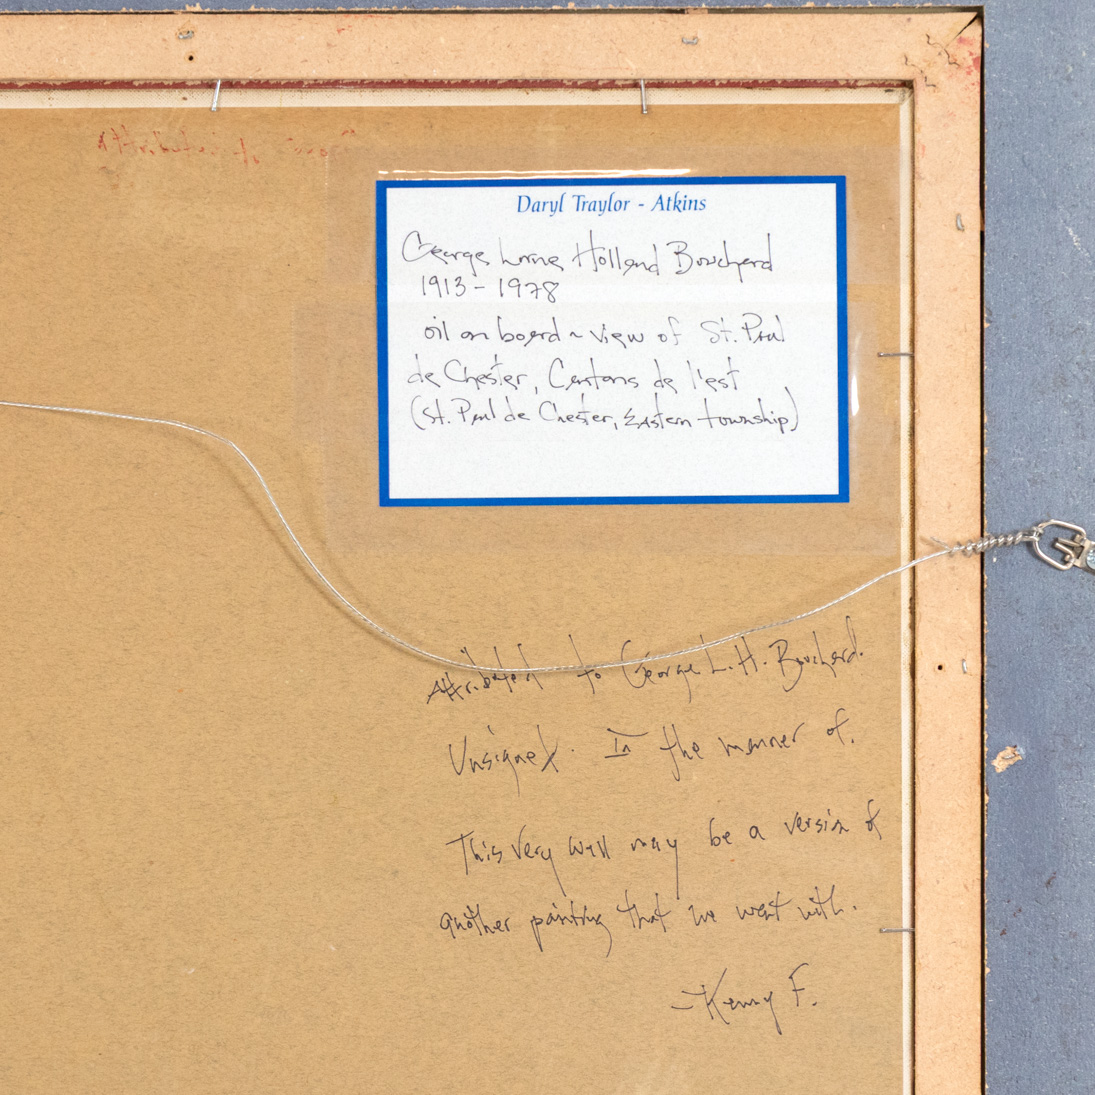 Daryl Traylor - Atkins
George Lorne Holland Bouchard
1913 - 1978
oil on board ~ view of St. Paul
de Chester, Cantons de l'est
(St. Paul de Chester, Eastern township)
Attributed to George L. H. Bouchard.
Unsigned. In the manner of.
This very well may be a version of
another painting that we went with.
- Kenny F.